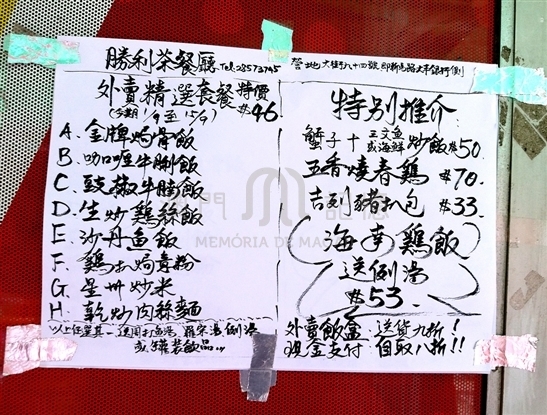 勝利茶餐廳 Tel: 28573745
外賣精選套餐 特價
(今期 1/9 至 15/9) $46
A. 金牌焗骨飯
B. 咖喱牛腩飯
C. 豉椒牛腩飯
D. 生炒雞絲飯
E. 沙丹魚飯
F. 雞扒焗意粉
G. 星州炒米
H. 乾炒肉絲麵
以上任選其一 送周打魚湯 羅宋湯 例湯
或罐裝飲品
營地大街八十四號 即新馬路大丰銀行側
特別推介
蟹子+三文魚或海鮮炒飯 $50
五香燒春雞 $70
吉列豬扒包 $33.
海南雞飯
送例湯
$53.
外賣飯盒 送貨九折!
現金支付 自取八折!!
澳門記憶
MEMÓRIA DE MA